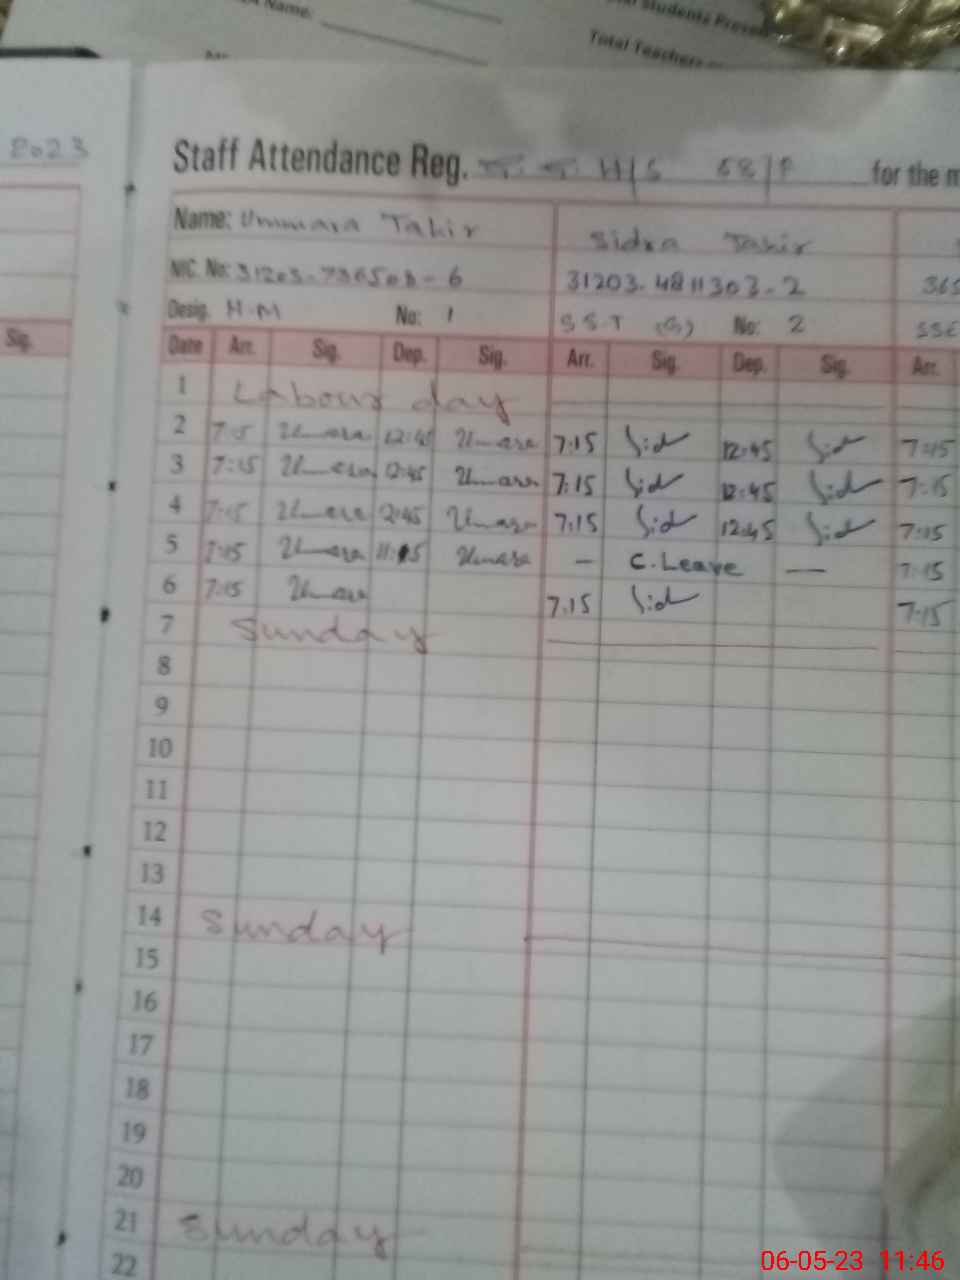 Name:
Students Presen
Total Teachers
2023
Staff Attendance Reg. H/S 68/P for the m
Name: Ummara Tahir Sidra Tahir
NIC. No: 31203-4811303-2 365
Desig. H.M No: 1 SS.T (G) No: 2 SSE
Sig. Date Arr. Sig. Dep. Sig. Arr. Sig. Dep. Sig. Arr.
1 Labour day
2 7:15 Umara 12:45 Umara 7:15 Sid 12:45 Sid 7:15
3 7:15 Umara 12:45 Umara 7:15 Sid 12:45 Sid 7:15
4 7:15 Umara 12:45 Umara 7:15 Sid 12:45 Sid 7:15
5 7:15 Umara Umara — C.Leave — 7:15
6 7:15 Umara 7:15 Sid 7:15
7 Sunday
8
9
10
11
12
13
14 Sunday
15
16
17
18
19
20
21 Sunday
22
06-05-23 11:46